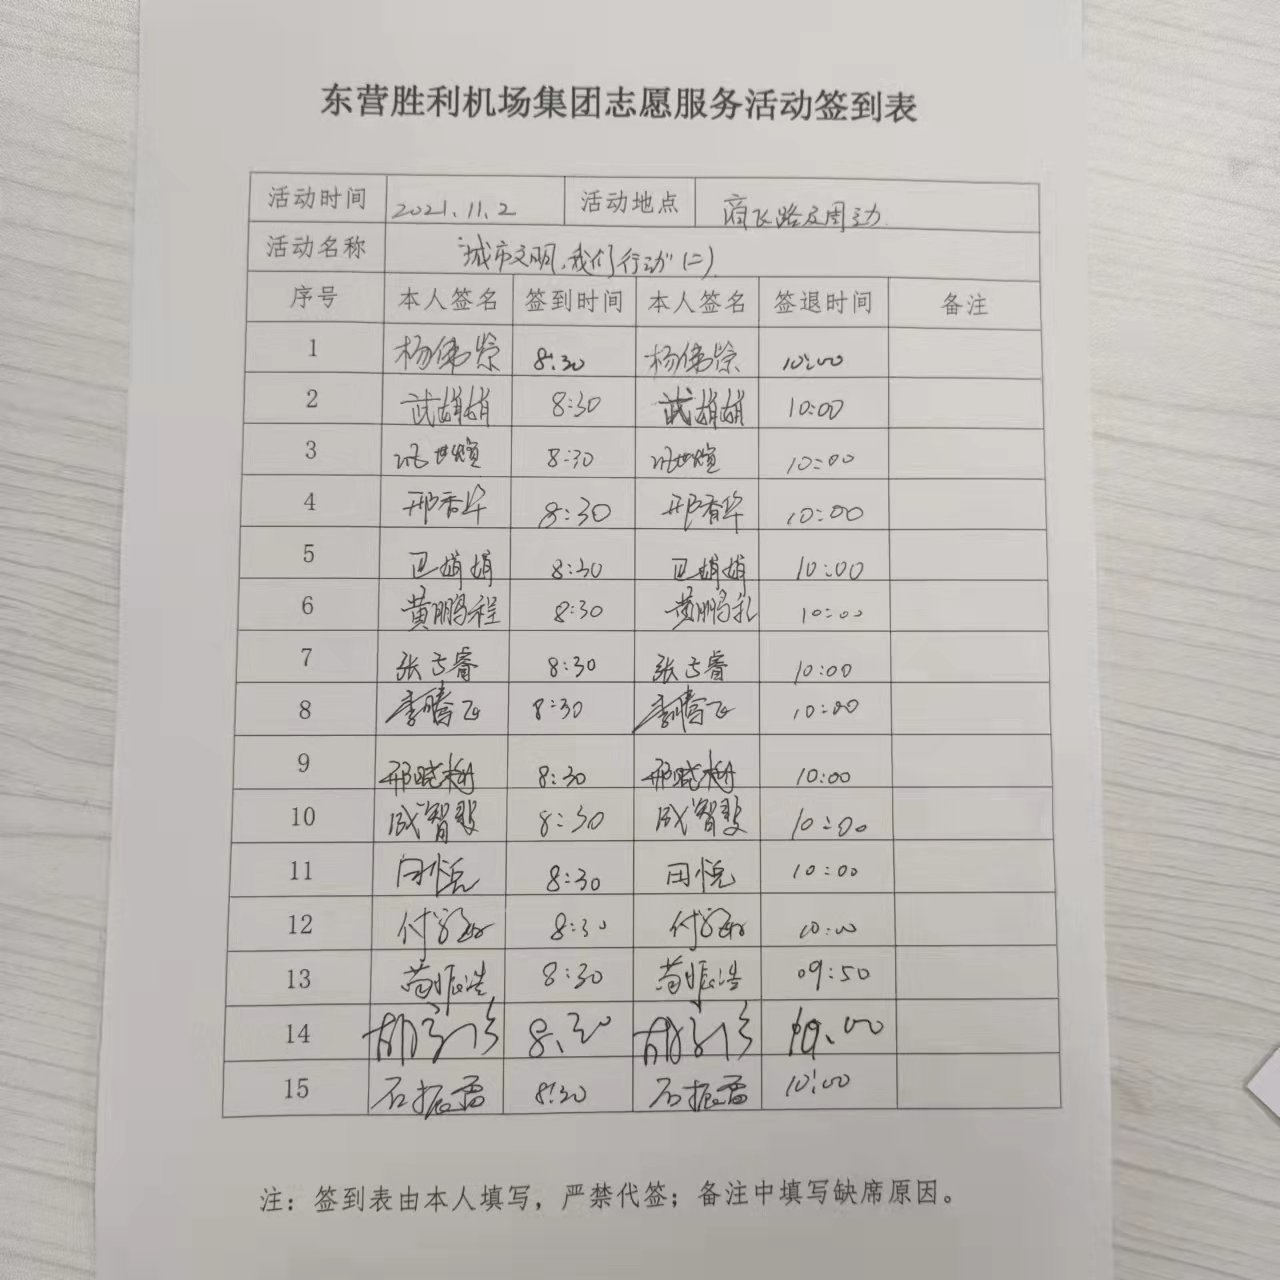 东营胜利机场集团志愿服务活动签到表
活动时间 2021.11.2 活动地点 商飞路及周边
活动名称 "城市文明,我们行动"(二)
序号 本人签名 签到时间 本人签名 签退时间 备注
1 8:30 10:00
2 武娟娟 8:30 武娟娟 10:00
3 8:30 10:00
4 邢香华 8:30 邢香华 10:00
5 卫娟娟 8:30 卫娟娟 10:00
6 黄鹏程 8:30 黄鹏程 10:00
7 8:30 10:00
8 李腾飞 8:30 李腾飞 10:00
9 8:30 10:00
10 8:30 10:00
11 闫悦 8:30 闫悦 10:00
12 8:30 10:00
13 苗振浩 8:30 苗振浩 09:50
14 8:30 10:00
15 石振雷 8:30 石振雷 10:00
注：签到表由本人填写，严禁代签；备注中填写缺席原因。